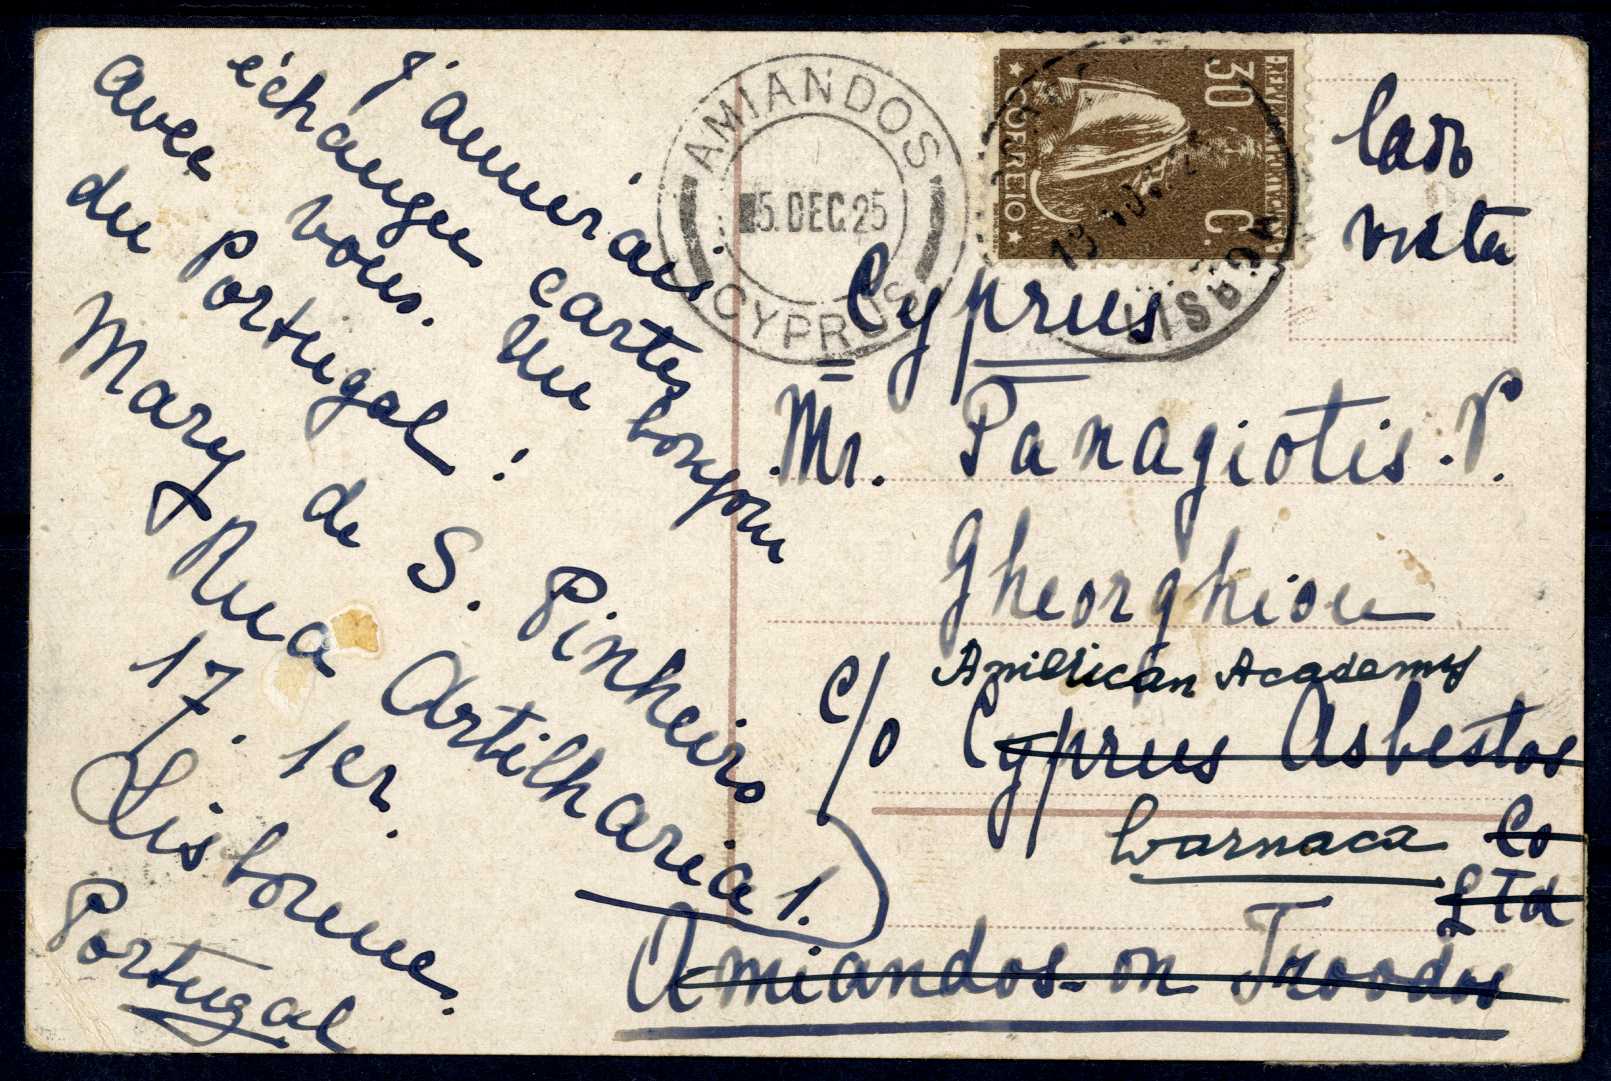 j'aimerais
échanger cartes
avec vous. Un bonjour
du Portugal!
Mary de S. Pinheiro
Rua Artilharia 1.
17. 1er.
Lisbonne.
Portugal
AMIANDOS
5. DEC. 25
CYPRUS
CORREIO
30 C.
19 NOV. 25
LISBOA
Cyprus
Mr. Panagiotis. P.
Gheorghiou
American Academy
c/o Cyprus Asbestos
Larnaca Co
Ltd
Amiandos-on Troodos